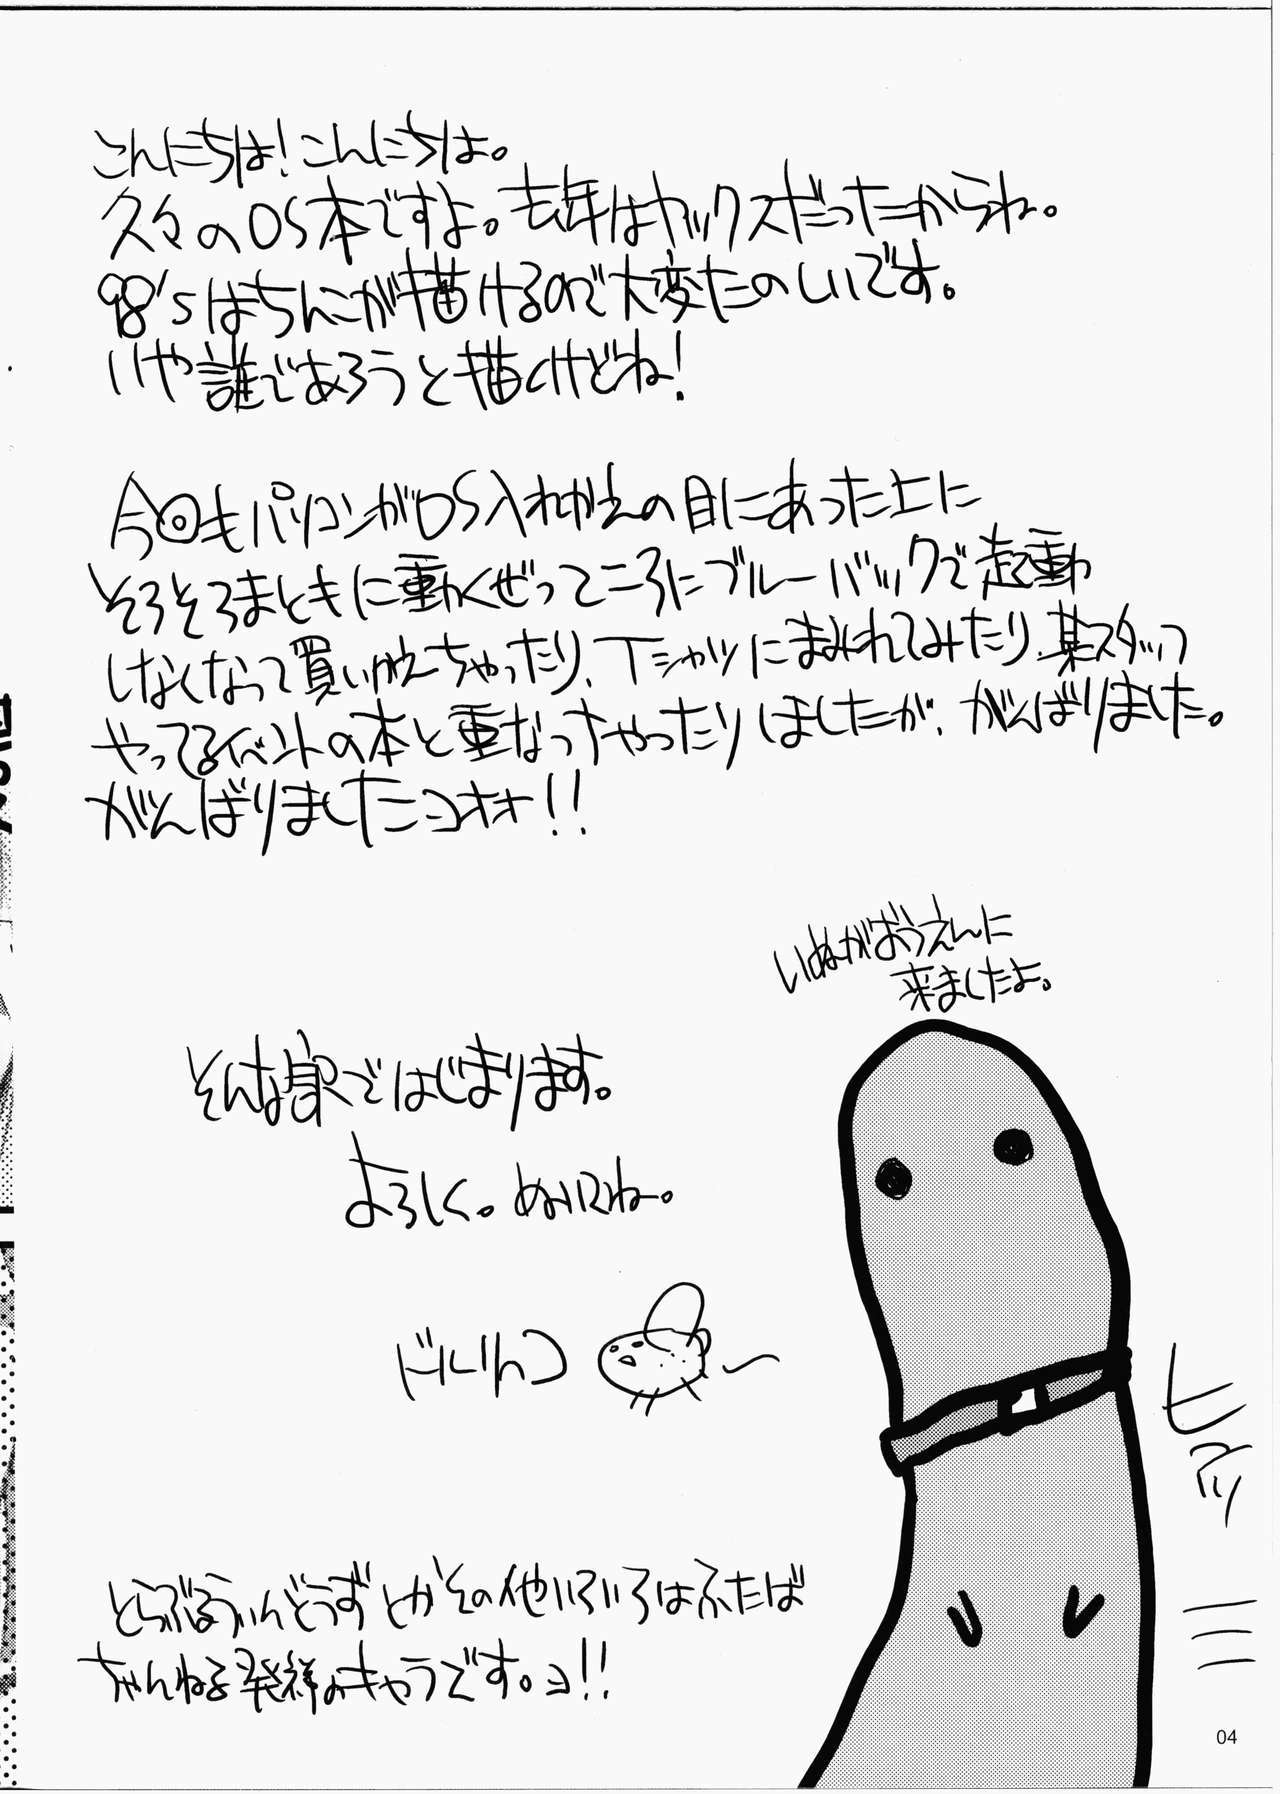 こんにちは!こんにちは。
久々のOS本ですよ。去年はヤックスだったからね。
98'sはちんこが描けるので大変たのしいです。
いや誰であろうと描くけどね!
今回もパソコンがOS入れかえの目にあった上に
そろそろまともに動くぜってころにブルーバックで起動
しなくなって買いかえちゃったり、Tシャツにまみれてみたり、某スタッフ
やってるイベントの本と重なっちゃったりしましたが、がんばりました。
がんばりましたニョオォ!!
いぬがおうえんに
来ましたよ。
そんな訳ではじまります。
よろしく。ぬいにね。
ドルリHつ
ヒョアッ
とらぶるういんどうずとかその他いろいろはふたば
ちゃんねる発祥のキャラです。ョ!!
04